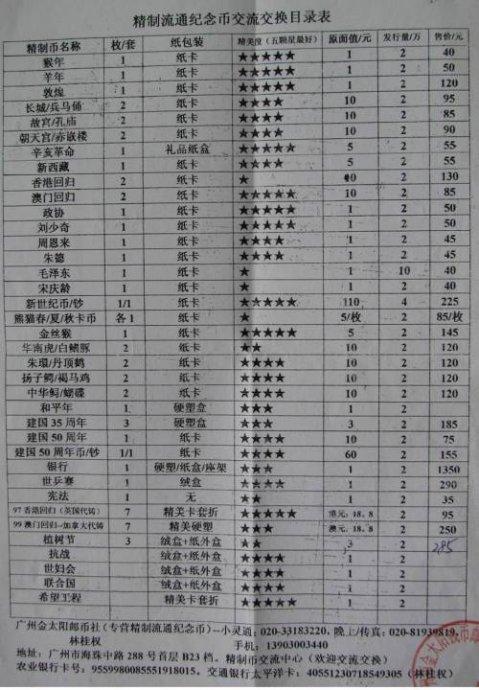 精制流通纪念币交流交换目录表
精制币名称 枚/套 纸包装 精美度(五颗星最好) 原面值/元 发行量/万 售价/元
猴年 1 纸卡 ★★★★★ 1 2 40
羊年 1 纸卡 ★★★★★ 1 2 50
敦煌 1 纸卡 ★★★★★ 1 2 120
长城/兵马俑 2 纸卡 ★★★★ 10 2 95
故宫/孔庙 2 纸卡 ★★★★ 10 2 85
朝天宫/赤嵌楼 2 纸卡 ★★★★ 10 2 90
辛亥革命 1 礼品纸盒 ★★★★★ 5 2 55
新西藏 1 纸卡 ★★★★ 5 2 55
香港回归 2 纸卡 ★ 2 130
澳门回归 2 纸卡 ★★★★★ 10 2 85
政协 1 纸卡 ★★★★★ 1 2 50
刘少奇 1 纸卡 ★★★★★ 1 2 50
周恩来 1 纸卡 ★★★★ 1 2 45
朱德 1 纸卡 ★★★★ 1 2 45
毛泽东 1 纸卡 ★ 1 10 40
宋庆龄 1 纸卡 ★ 1 2 40
新世纪币/钞 1/1 纸卡 ★★★★★ 110 4 225
熊猫春/夏/秋卡币 各1 纸卡 ★ 5/枚 2 85/枚
金丝猴 1 纸卡 ★★★★★ 5 2 145
华南虎/白鳍豚 2 纸卡 ★★ 10 2 120
朱環/丹顶鹤 2 纸卡 ★★★★ 10 2 120
扬子鳄/褐马鸡 2 纸卡 ★★★★ 10 2 120
中华鲟/蝴蝶 2 纸卡 ★★★★ 10 2 120
和平年 1 硬塑盒 ★★★ 1 2
建国35周年 3 硬塑盒 ★★★ 3 2 185
建国50周年 1 纸卡 ★★★★ 10 2 75
建国50周年币/钞 1/1 纸卡 ★★★★ 60 2 155
银行 1 硬塑/纸盒/座架 ★★★ 1 2 1350
世乒赛 1 绒盒 ★★★★ 1 2 290
宪法 1 无 ★★ 1 2 35
97香港回归(英国代铸) 7 精美卡套折 ★★★★★ 港元:18.8 2 95
99澳门回归--加拿大代铸 7 精美硬塑 ★★★ 澳元:18.8 2 250
植树节 3 绒盒+纸外盒 ★★ 3 2 285
抗战 绒盒+纸外盒 ★★★★ 1 2
世妇会 绒盒+纸外盒 ★★★★ 1 2
联合国 绒盒+纸外盒 ★★★★ 1 2
希望工程 精美卡套折 ★★★★★ 1 2
广州金太阳邮币社(专营精制流通纪念币)--小灵通:020-33183220,晚上/传真:020-81939819,
林桂权 手机:13903003440
地址:广州市海珠中路288号首层B23档。精制币交流中心(欢迎交流交换)
农业银行卡号:9559980085551918015。交通银行太平洋卡:40551230718549305(林桂权)